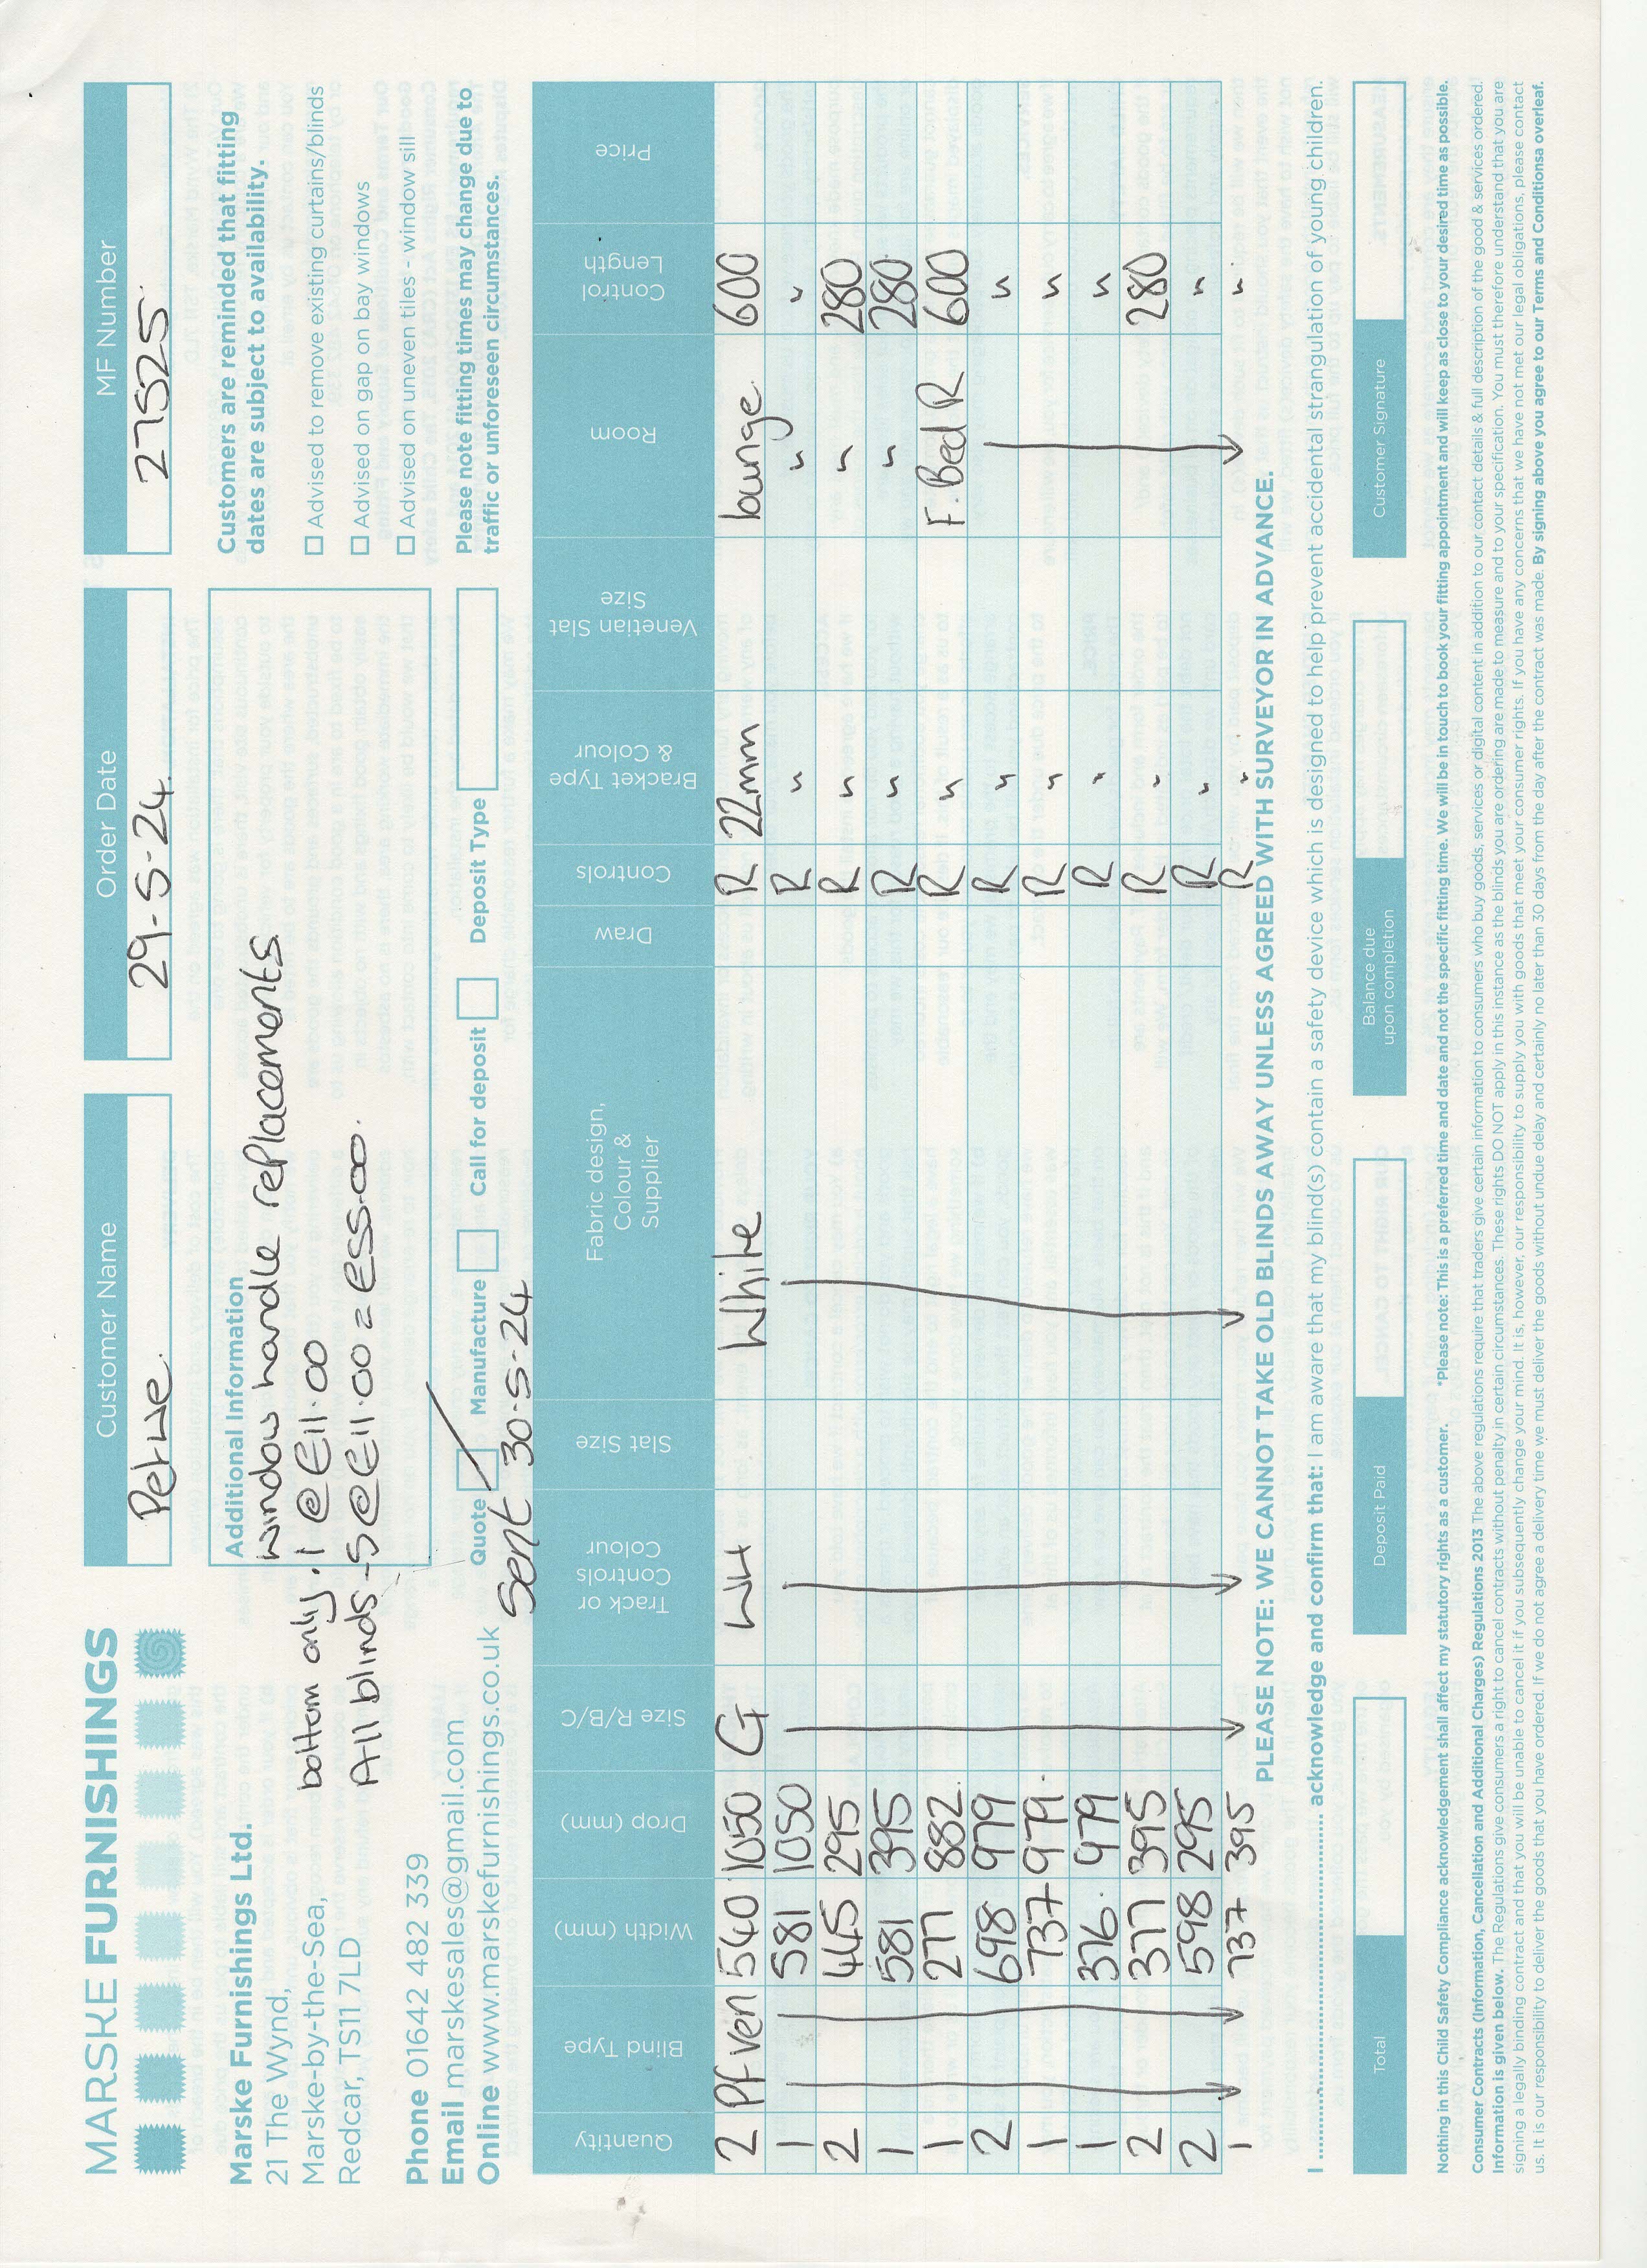 MARSKE FURNISHINGS
Marske Furnishings Ltd.
21 The Wynd,
Marske-by-the-Sea,
Redcar, TS11 7LD
Phone 01642 482 339
Email marskesales@gmail.com
Online www.marskefurnishings.co.uk
Customer Name
Order Date
29-5-24
MF Number
27525
Additional Information
window handle replacements
bottom only. 1 @ £11.00
All blinds - 5 @ £11.00 = £55.00.
Customers are reminded that fitting
dates are subject to availability.
Advised to remove existing curtains/blinds
Advised on gap on bay windows
Advised on uneven tiles - window sill
Please note fitting times may change due to
traffic or unforeseen circumstances.
Quote Manufacture Call for deposit Deposit Type
Sent 30-5-24
Quantity Blind Type Width (mm) Drop (mm) Size R/B/C Track or Controls Colour Slat Size Fabric design, Colour & Supplier Draw Controls Bracket Type & Colour Venetian Slat Size Room Control Length Price
2 Pf ven 540 1050 G WH White R 22mm lounge 600
1 581 1050 R " " "
2 445 295 R " " 280
1 581 395 R " " 280
1 277 882 R " F. Bed R 600
2 698 979 R " "
1 737 979 R " "
1 376 979 R " "
2 377 395 R " 280
2 598 295 R " "
1 737 395 R " "
PLEASE NOTE: WE CANNOT TAKE OLD BLINDS AWAY UNLESS AGREED WITH SURVEYOR IN ADVANCE.
I .............................. acknowledge and confirm that: I am aware that my blind(s) contain a safety device which is designed to help prevent accidental strangulation of young children.
Total
Deposit Paid
Balance due
upon completion
Customer Signature
Nothing in this Child Safety Compliance acknowledgement shall affect my statutory rights as a customer. *Please note: This is a preferred time and date and not the specific fitting time. We will be in touch to book your fitting appointment and will keep as close to your desired time as possible.
Consumer Contracts (Information, Cancellation and Additional Charges) Regulations 2013 The above regulations require that traders give certain information to consumers who buy goods, services or digital content in addition to our contact details & full description of the good & services ordered.
Information is given below. The Regulations give consumers a right to cancel contracts without penalty in certain circumstances. These rights DO NOT apply in this instance as the blinds you are ordering are made to measure and to your specification. You must therefore understand that you are
signing a legally binding contract and that you will be unable to cancel it if you subsequently change your mind. It is, however, our responsibility to supply you with goods that meet your consumer rights. If you have any concerns that we have not met our legal obligations, please contact
us. It is our responsibility to deliver the goods that you have ordered. If we do not agree a delivery time we must deliver the goods without undue delay and certainly no later than 30 days from the day after the contract was made. By signing above you agree to our Terms and Conditionsa overleaf.